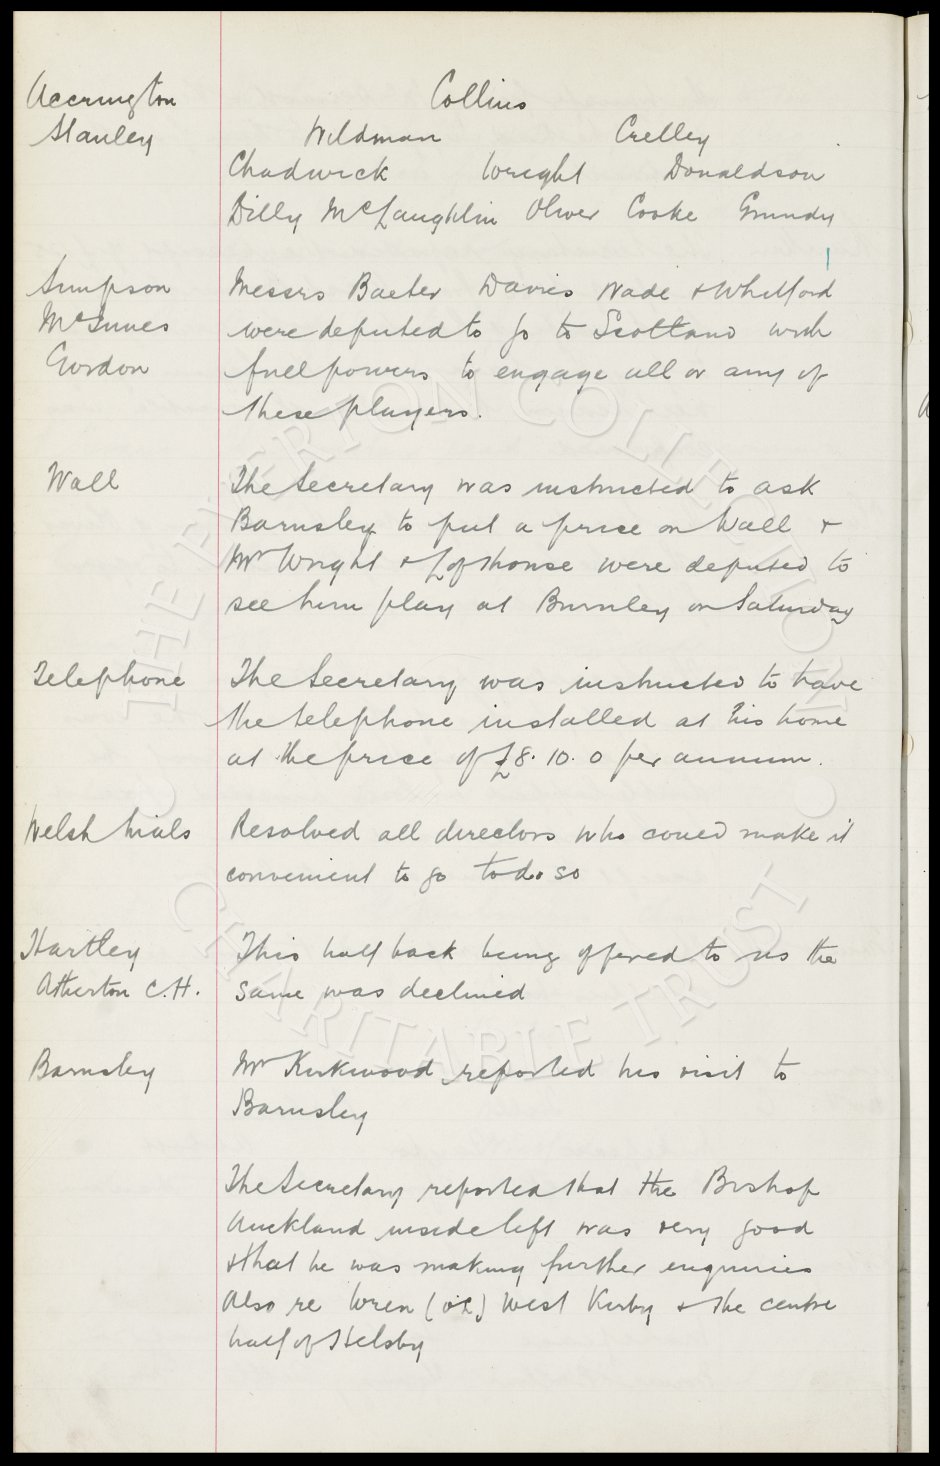 Accrington Collins
Stanley Wildman Crelley
Chadwick Wright Donaldson
Dilly McLaughlin Oliver Cooke Grundy
Simpson Messrs Baxter Davies Wade & Whitford
McInnes were deputed to go to Scotland with
Gordon full powers to engage all or any of
these players.
Wall The Secretary was instructed to ask
Barnsley to put a price on Wall &
Mr Wright & Lofthouse were deputed to
see him play at Burnley on Saturday
Telephone The Secretary was instructed to have
the telephone installed at his home
at the price of £8. 10. 0 per annum.
Welsh trials Resolved all directors who could make it
convenient to go to do so
Hartley This half back being offered to us the
Atherton C.H. same was declined
Barnsley Mr Kirkwood reported his visit to
Barnsley
The Secretary reported that the Bishop
Auckland inside left was very good
& that he was making further enquiries
also re Wren (o.L) West Kirby & the centre
half of Helsby
THE EVERTON COLLECTION
CHARITABLE TRUST